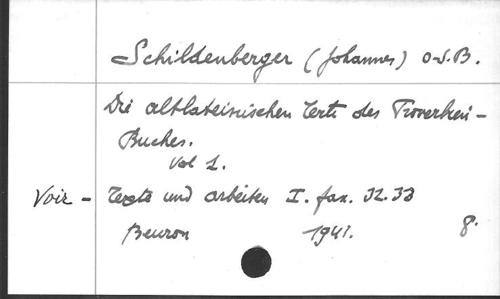 Schildenberger (Johannes) O.S.B.
Die altlateinischen Texte des Proverbien-
Buches.
Vol 1.
Voir - Texte und arbeiten I. fax. 32.33
Beuron 1941. 8.